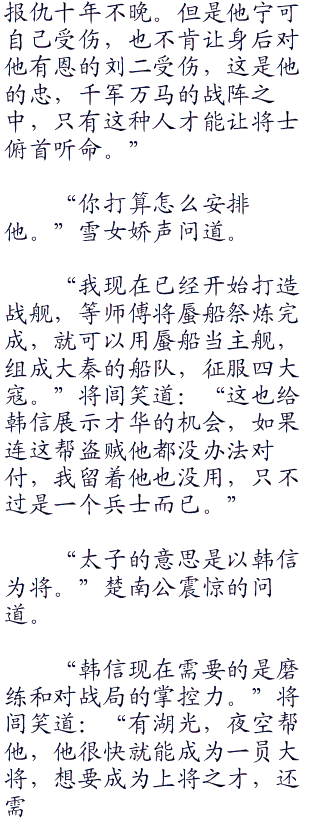 报仇十年不晚。但是他宁可
自己受伤，也不肯让身后对
他有恩的刘二受伤，这是他
的忠，千军万马的战阵之
中，只有这种人才能让将士
俯首听命。”
“你打算怎么安排
他。”雪女娇声问道。
“我现在已经开始打造
战舰，等师傅将蜃船祭炼完
成，就可以用蜃船当主舰，
组成大秦的船队，征服四大
寇。”将闾笑道：“这也给
韩信展示才华的机会，如果
连这帮盗贼他都没办法对
付，我留着他也没用，只不
过是一个兵士而已。”
“太子的意思是以韩信
为将。”楚南公震惊的问
道。
“韩信现在需要的是磨
练和对战局的掌控力。”将
闾笑道：“有湖光，夜空帮
他，他很快就能成为一员大
将，想要成为上将之才，还
需